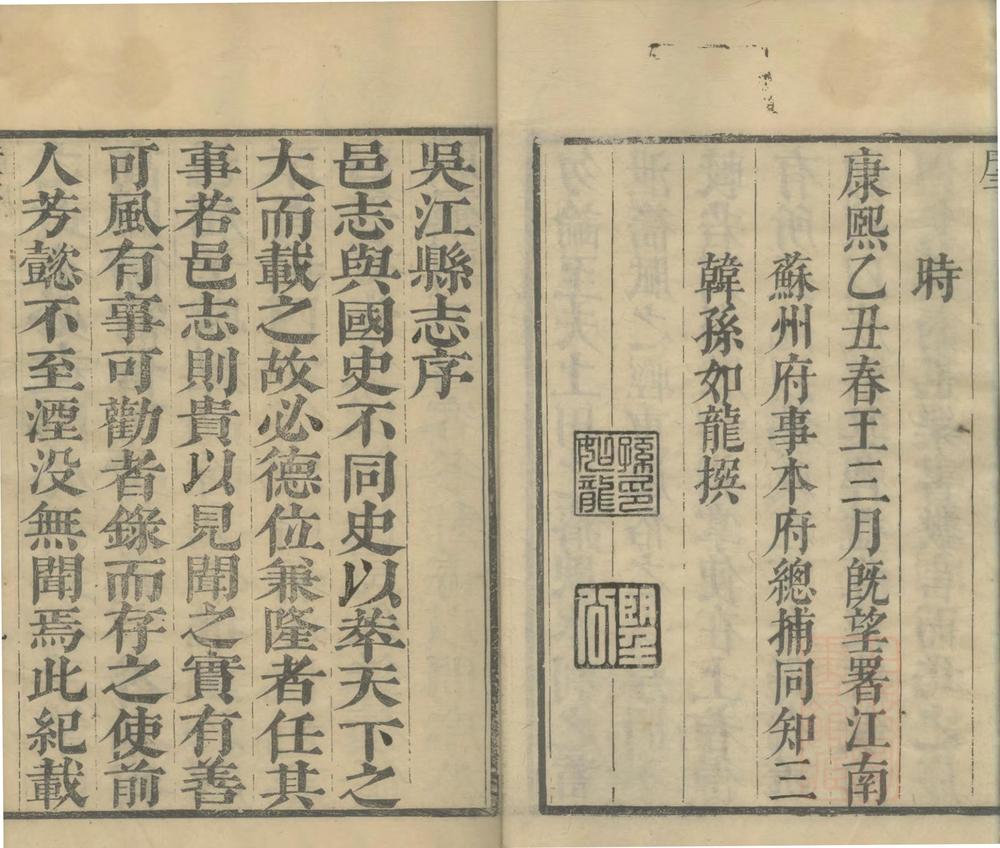 時
康熙乙丑春王三月旣望署江南
蘇州府事本府總捕同知三
韓孫如龍撰
孫如龍印
吳江縣志序
邑志與國史不同史以萃天下之
大而載之故必德位兼隆者任其
事若邑志則貴以見聞之實有善
可風有事可勸者錄而存之使前
人芳懿不至湮没無聞焉此紀載